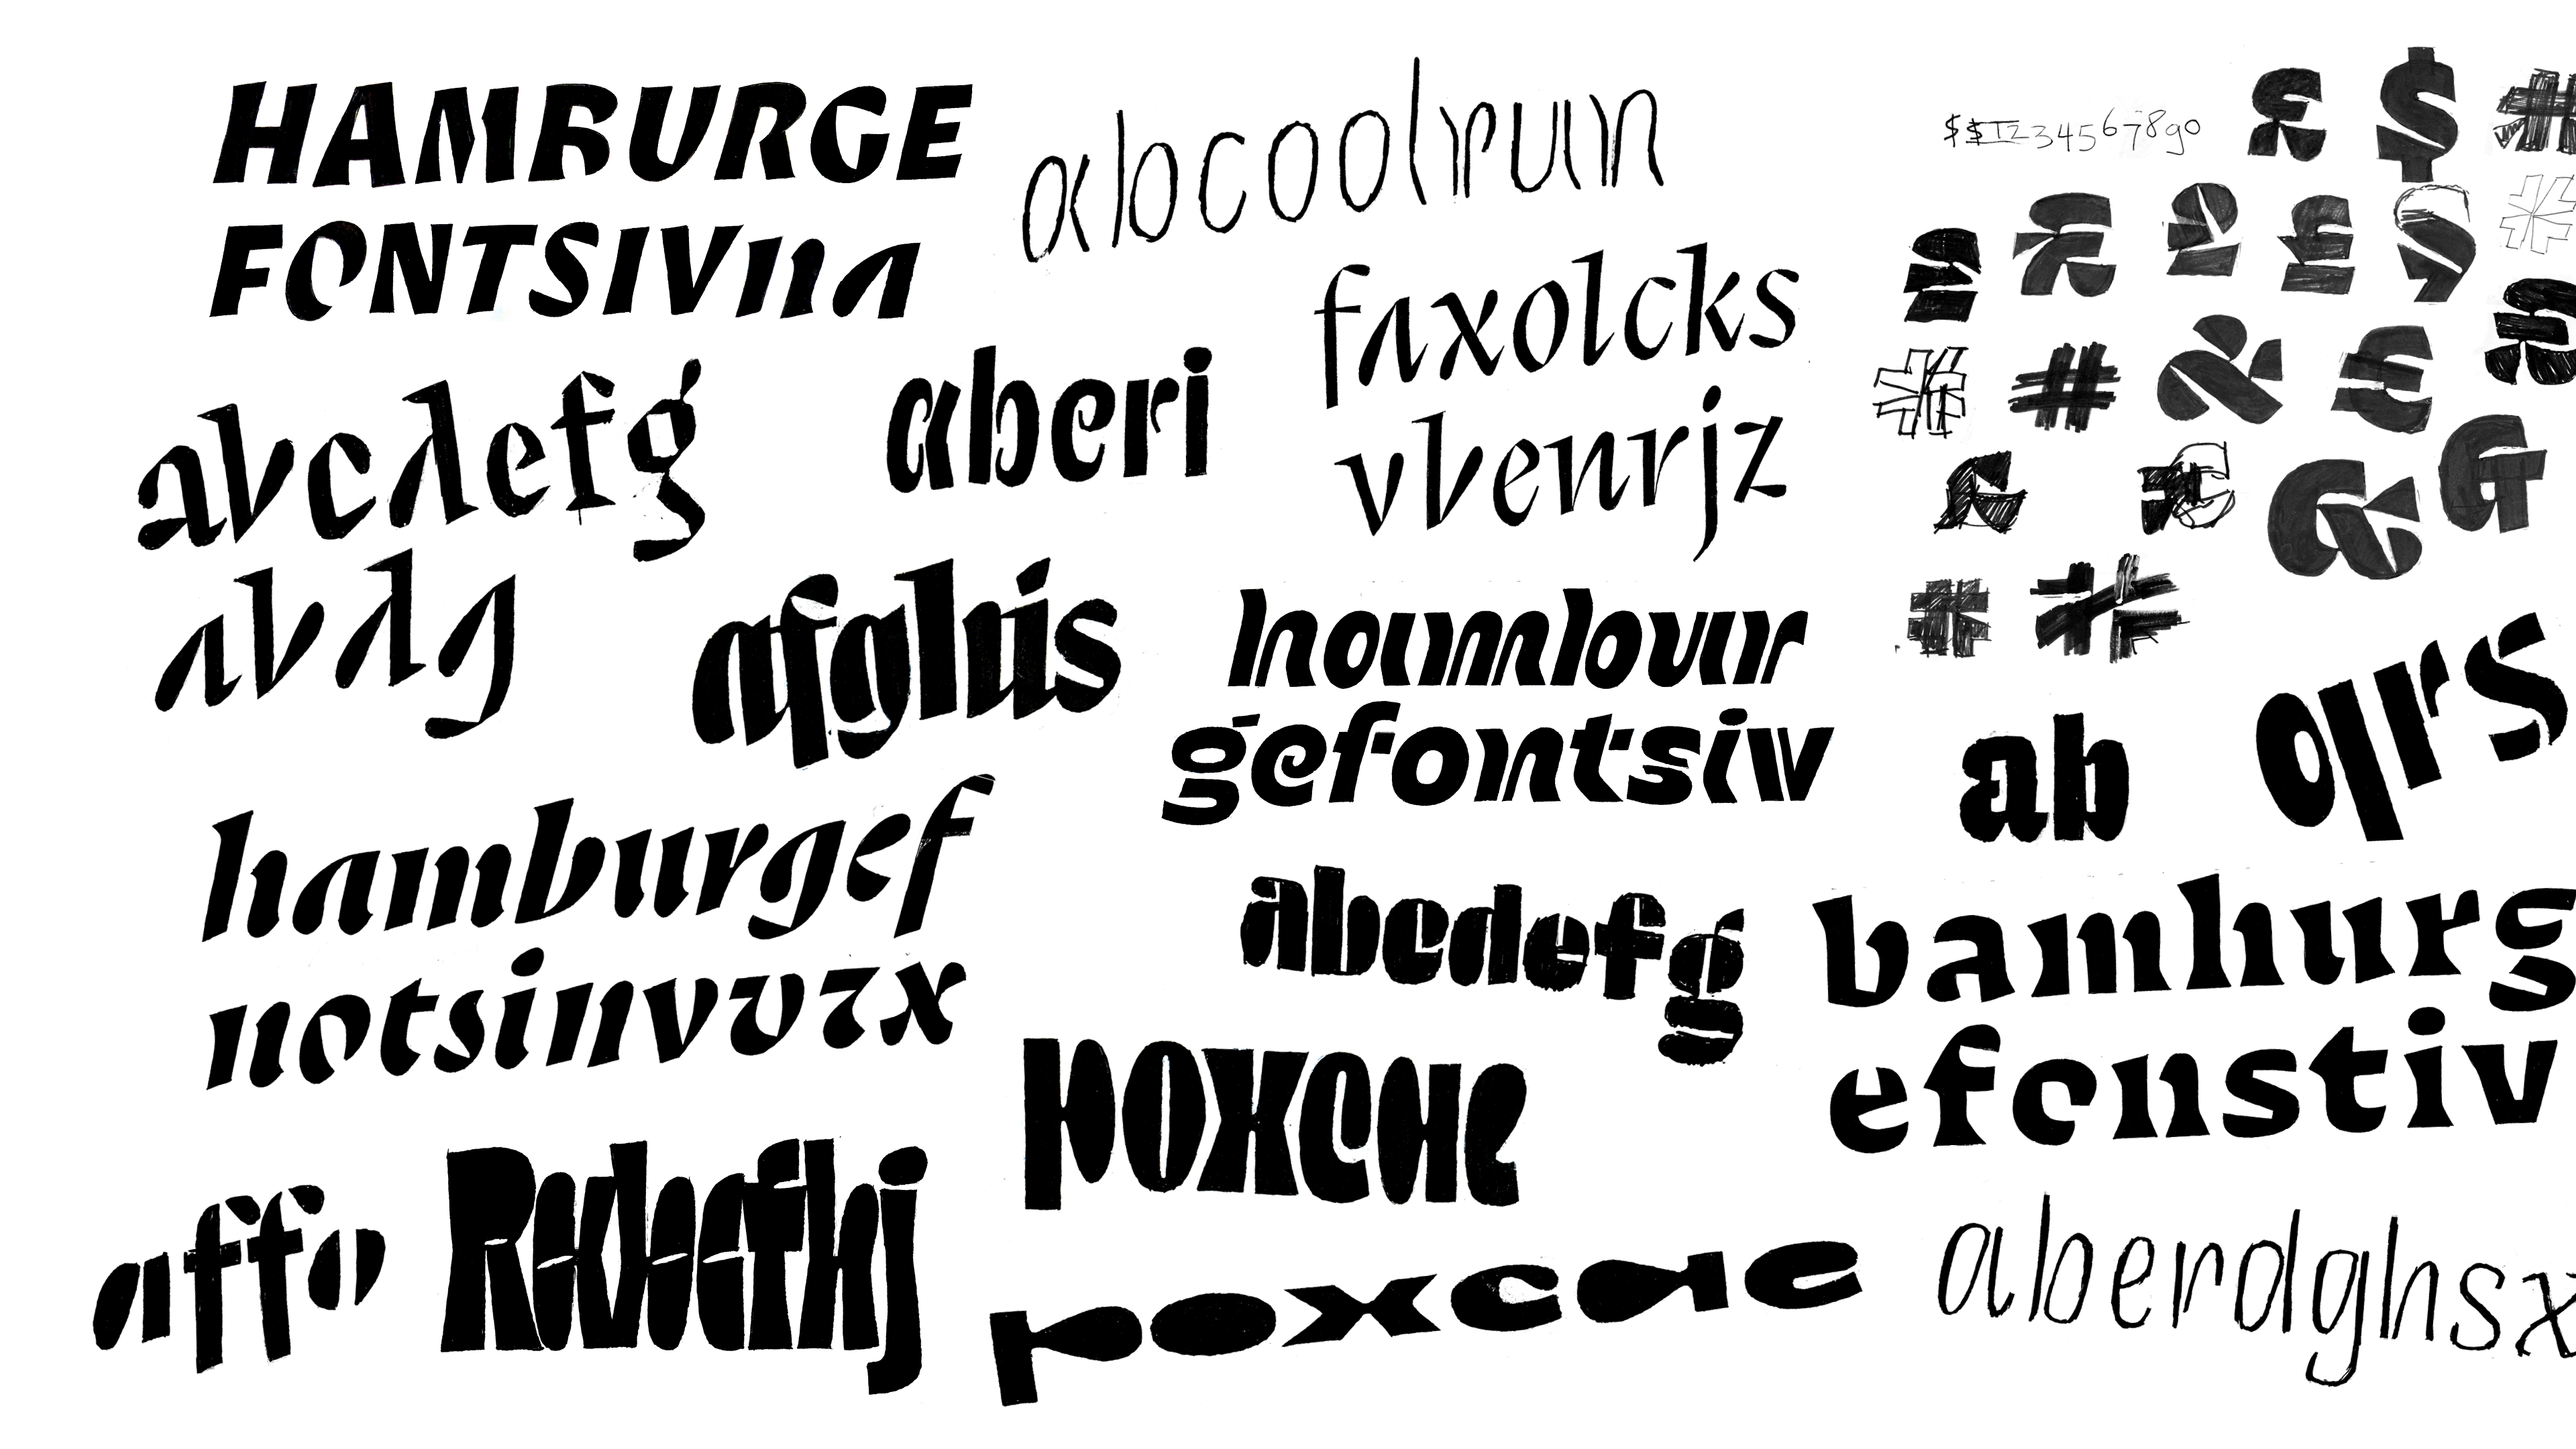 HAMBURGE
FONTSIVna
abcoolrun
$$1234567890
£ $ #
faxolcks
vbenrjz
abcdefg
aberi
abdg
afghis
hambur
gefontsiv
ab
qrs
hamburgef
notsinvvzx
abcdefg
bamhurg
efonstiv
poxcne
affo
poxcne
aberdghsx